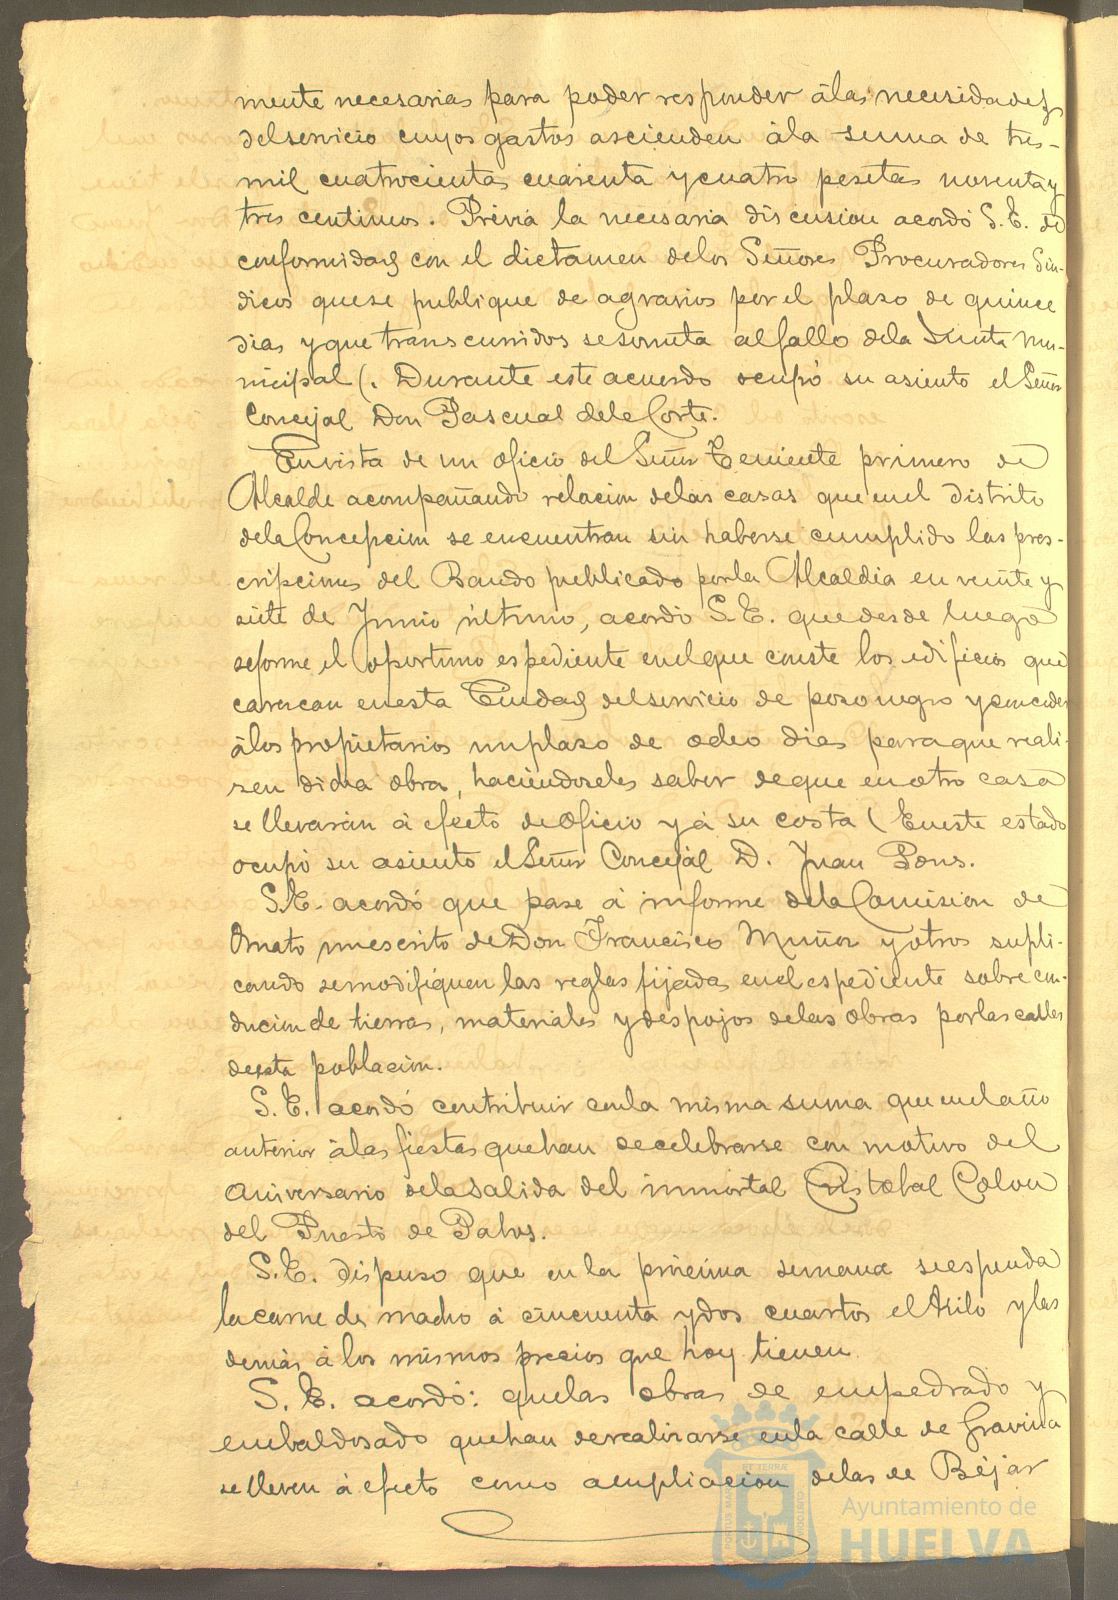 mente necesarias para poder responder á las necesidades
del servicio cuyos gastos ascienden á la suma de tres
mil cuatrocientas cuarenta y cuatro pesetas noventa y
tres centimos. Prévia la necesaria discusion acordó S.E. de
conformidad con el dictamen de los Señores Procuradores Sin-
dicos que se publique de agravios por el plazo de quince
dias y que transcurridos se someta al fallo de la Junta Mu-
nicipal (. Durante este acuerdo ocupó su asiento el Señor
Concejal Don Pascual de la Corte.
En vista de un oficio del Señor Teniente primero de
Alcalde acompañando relacion de las casas que en el distrito
de la Concepcion se encuentran sin haberse cumplido las pres-
cripciones del Bando publicado por la Alcaldia en veinte y
siete de Junio último, acordó S.E. que desde luego
se forme el oportuno espediente en el que conste los edificios que
carezcan en esta Ciudad del servicio de pozo negro y conceder
á los propietarios un plazo de ocho dias para que reali-
zen dicha obra, haciendoseles saber de que en otro caso
se llevarán á efecto de Oficio y á su costa ( En este estado
ocupó su asiento el Señor Concejal D. Juan Pons.
S.E. acordó que pase á informe de la Comision de
Ornato un escrito de Don Francisco Muñoz y otros supli-
cando se modifiquen las reglas fijadas en el espediente sobre con-
ducion de tierras, materiales y despojos de las obras por las calles
de esta poblacion.
S.E. acordó contribuir con la misma suma que en el año
anterior á las fiestas que han de celebrarse con motivo del
aniversario de la salida del inmortal Cristobal Colon
del Puerto de Palos.
S.E. dispuso que en la próxima semana se espenda
la carne de macho á cincuenta y dos cuartos el Kilo y las
demás á los mismos precios que hoy tienen.
S.E. acordó: que las obras de empedrado y
embaldosado que han de realizarse en la calle de Gravina
se lleven á efecto como ampliacion de las de Béjar
Ayuntamiento de
HUELVA